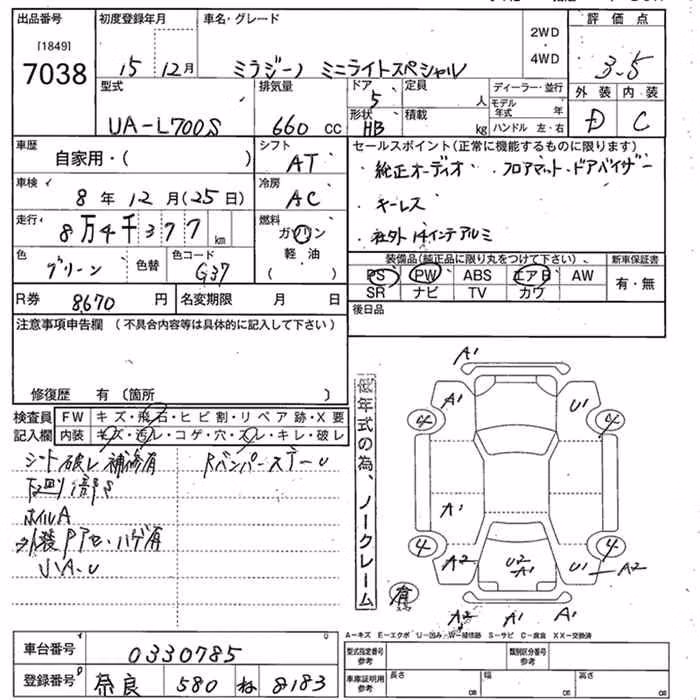 出品番号 初度登録年月 車名・グレード 2WD 評価点
[1849] 4WD
7038 15 12月 ミラジーノ ミニライトスペシャル 3.5
型式 排気量 ドア 定員 ディーラー・並行 外装 内装
UA-L700S 660 cc 5 人 モデル年式 年 D C
形状 HB 積載 kg ハンドル 左・右
車歴 シフト セールスポイント(正常に機能するものに限ります)
自家用・( ) AT ・純正オーディオ ・フロアマット・ドアバイザー
車検 冷房 ・キーレス
8年12月(25日) AC ・社外14インチアルミ
走行 燃料
8万4千377km ガソリン
色 色コード 軽油
グリーン 色替 G37 ( )
装備品(純正品に限り丸をつけて下さい) 新車保証書
PS PW ABS エアB AW 有・無
SR ナビ TV カワ
R券 8670円 名変期限 月 日 後日品
注意事項申告欄 (不具合内容等は具体的に記入して下さい)
修復歴 有 (箇所 )
検査員 FW キズ・飛石・ヒビ割・リペア跡・X要
記入欄 内装 キズ・汚レ・コゲ・穴・スレ・キレ・破レ
シート破レ補修有 RバンパーステーU
下廻り S
ホイルA
外装 ハゲ有
小A・U
低年式の為、ノークレーム
A1
A1 U1
4 4
A1
4 4
A2 U2 A1 U1 A2
A2 A1 A1
A-キズ E-エクボ U-凹み W-補修跡 S-サビ C-腐食 XX-交換済
車台番号 0330785 型式指定番号 参考 類別区分番号 参考
登録番号 奈良 580 ね 8183 車庫証明用 参考 長さ cm 幅 cm 高さ cm